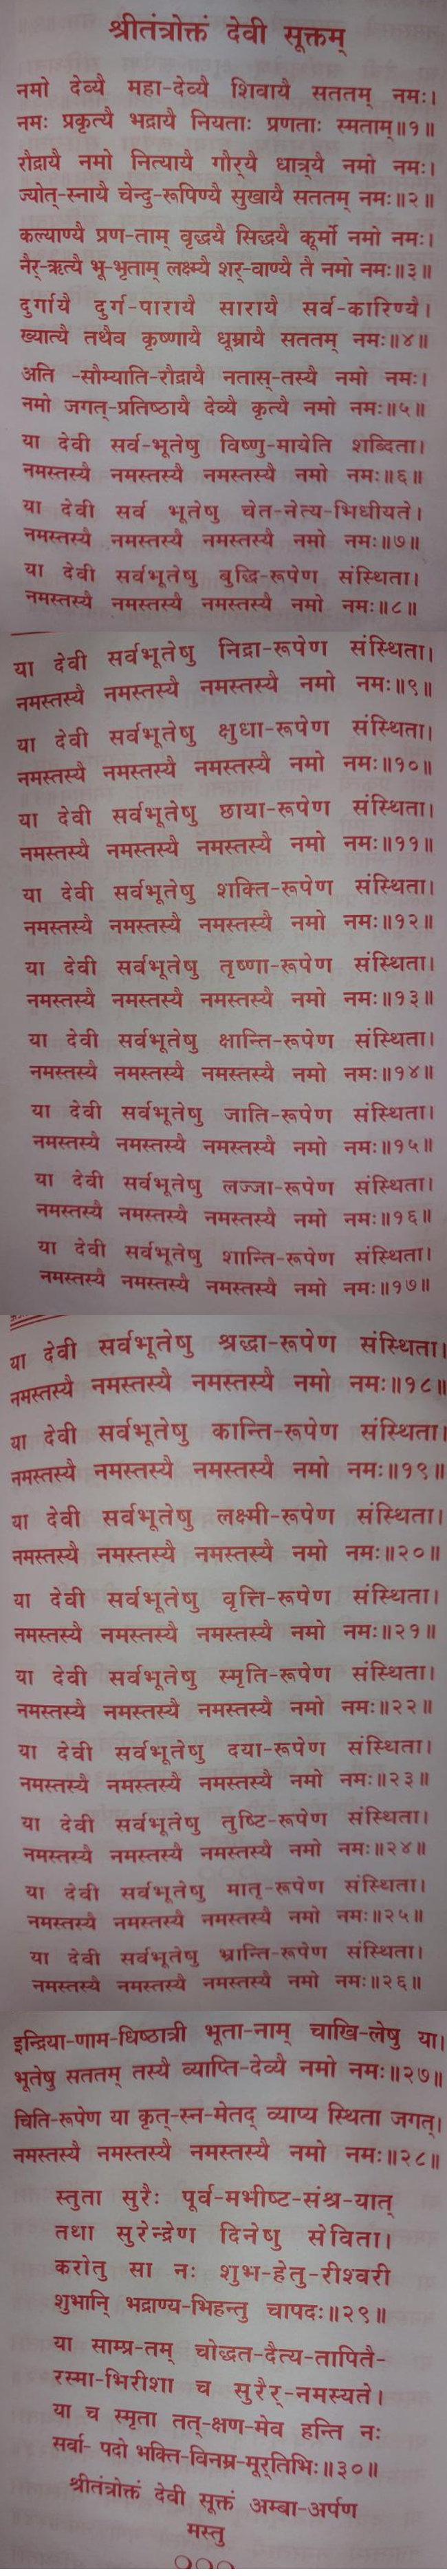 श्रीतंत्रोक्तं देवी सूक्तम्
नमो देव्यै महा-देव्यै शिवायै सततम् नमः।
नमः प्रकृत्यै भद्रायै नियताः प्रणताः स्मताम्॥१॥
रौद्रायै नमो नित्यायै गौर्‍यै धात्र्‍यै नमो नमः।
ज्योत्-स्नायै चेन्दु-रूपिण्यै सुखायै सततम् नमः॥२॥
कल्याण्यै प्रण-ताम् वृद्धयै सिद्धयै कूर्मो नमो नमः।
नैर्-ऋत्यै भू-भृताम् लक्ष्म्यै शर्-वाण्यै तै नमो नमः॥३॥
दुर्गायै दुर्ग-पारायै सारायै सर्व-कारिण्यै।
ख्यात्यै तथैव कृष्णायै धूम्रायै सततम् नमः॥४॥
अति -सौम्याति-रौद्रायै नतास्-तस्यै नमो नमः।
नमो जगत्-प्रतिष्ठायै देव्यै कृत्यै नमो नमः॥५॥
या देवी सर्व-भूतेषु विष्णु-मायेति शब्दिता।
नमस्तस्यै नमस्तस्यै नमस्तस्यै नमो नमः॥६॥
या देवी सर्व भूतेषु चेत-नेत्य-भिधीयते।
नमस्तस्यै नमस्तस्यै नमस्तस्यै नमो नमः॥७॥
या देवी सर्वभूतेषु बुद्धि-रूपेण संस्थिता।
नमस्तस्यै नमस्तस्यै नमस्तस्यै नमो नमः॥८॥
या देवी सर्वभूतेषु निद्रा-रूपेण संस्थिता।
नमस्तस्यै नमस्तस्यै नमस्तस्यै नमो नमः॥९॥
या देवी सर्वभूतेषु क्षुधा-रूपेण संस्थिता।
नमस्तस्यै नमस्तस्यै नमस्तस्यै नमो नमः॥१०॥
या देवी सर्वभूतेषु छाया-रूपेण संस्थिता।
नमस्तस्यै नमस्तस्यै नमस्तस्यै नमो नमः॥११॥
या देवी सर्वभूतेषु शक्ति-रूपेण संस्थिता।
नमस्तस्यै नमस्तस्यै नमस्तस्यै नमो नमः॥१२॥
या देवी सर्वभूतेषु तृष्णा-रूपेण संस्थिता।
नमस्तस्यै नमस्तस्यै नमस्तस्यै नमो नमः॥१३॥
या देवी सर्वभूतेषु क्षान्ति-रूपेण संस्थिता।
नमस्तस्यै नमस्तस्यै नमस्तस्यै नमो नमः॥१४॥
या देवी सर्वभूतेषु जाति-रूपेण संस्थिता।
नमस्तस्यै नमस्तस्यै नमस्तस्यै नमो नमः॥१५॥
या देवी सर्वभूतेषु लज्जा-रूपेण संस्थिता।
नमस्तस्यै नमस्तस्यै नमस्तस्यै नमो नमः॥१६॥
या देवी सर्वभूतेषु शान्ति-रूपेण संस्थिता।
नमस्तस्यै नमस्तस्यै नमस्तस्यै नमो नमः॥१७॥
या देवी सर्वभूतेषु श्रद्धा-रूपेण संस्थिता।
नमस्तस्यै नमस्तस्यै नमस्तस्यै नमो नमः॥१८॥
या देवी सर्वभूतेषु कान्ति-रूपेण संस्थिता।
नमस्तस्यै नमस्तस्यै नमस्तस्यै नमो नमः॥१९॥
या देवी सर्वभूतेषु लक्ष्मी-रूपेण संस्थिता।
नमस्तस्यै नमस्तस्यै नमस्तस्यै नमो नमः॥२०॥
या देवी सर्वभूतेषु वृत्ति-रूपेण संस्थिता।
नमस्तस्यै नमस्तस्यै नमस्तस्यै नमो नमः॥२१॥
या देवी सर्वभूतेषु स्मृति-रूपेण संस्थिता।
नमस्तस्यै नमस्तस्यै नमस्तस्यै नमो नमः॥२२॥
या देवी सर्वभूतेषु दया-रूपेण संस्थिता।
नमस्तस्यै नमस्तस्यै नमस्तस्यै नमो नमः॥२३॥
या देवी सर्वभूतेषु तुष्टि-रूपेण संस्थिता।
नमस्तस्यै नमस्तस्यै नमस्तस्यै नमो नमः॥२४॥
या देवी सर्वभूतेषु मातृ-रूपेण संस्थिता।
नमस्तस्यै नमस्तस्यै नमस्तस्यै नमो नमः॥२५॥
या देवी सर्वभूतेषु भ्रान्ति-रूपेण संस्थिता।
नमस्तस्यै नमस्तस्यै नमस्तस्यै नमो नमः॥२६॥
इन्द्रिया-णाम-धिष्ठात्री भूता-नाम् चाखि-लेषु या।
भूतेषु सततम् तस्यै व्याप्ति-देव्यै नमो नमः॥२७॥
चिति-रूपेण या कृत्-स्न-मेतद् व्याप्य स्थिता जगत्।
नमस्तस्यै नमस्तस्यै नमस्तस्यै नमो नमः॥२८॥
स्तुता सुरैः पूर्व-मभीष्ट-संश्र-यात्
तथा सुरेन्द्रेण दिनेषु सेविता।
करोतु सा नः शुभ-हेतु-रीश्वरी
शुभानि भद्राण्य-भिहन्तु चापदः॥२९॥
या साम्प्र-तम् चोद्धत-दैत्य-तापितै-
रस्मा-भिरीशा च सुरैर्-नमस्यते।
या च स्मृता तत्-क्षण-मेव हन्ति नः
सर्वा- पदो भक्ति-विनम्र-मूर्‍तिभिः॥३०॥
श्रीतंत्रोक्तं देवी सूक्तं अम्बा-अर्पण
मस्तु